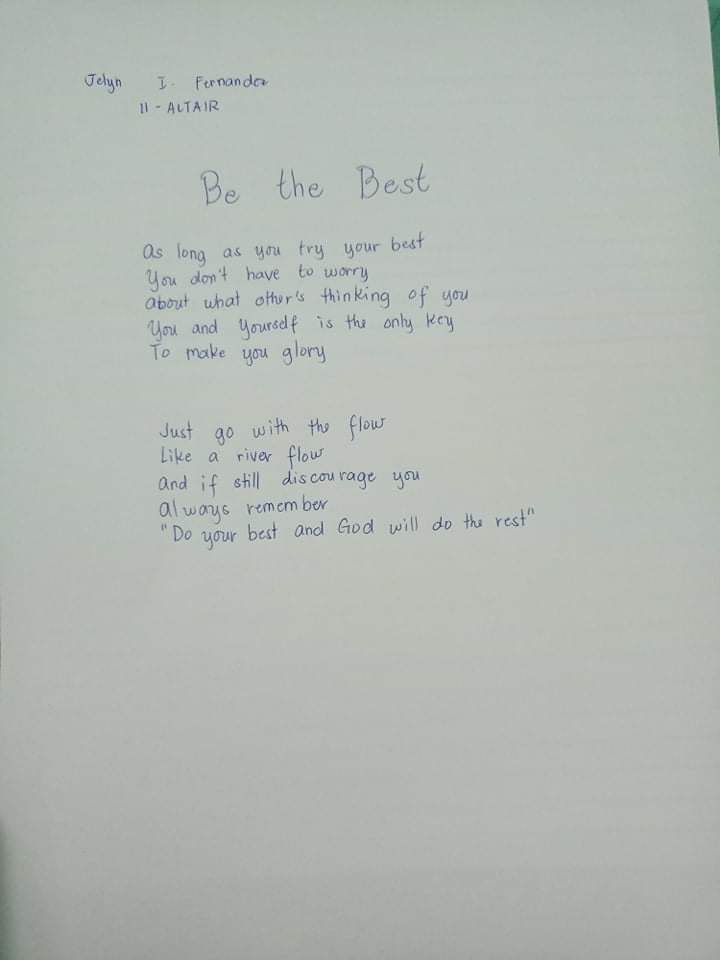 Jelyn I. Fernandez
11 - ALTAIR
Be the Best
As long as you try your best
You don't have to worry
about what other's thinking of you
You and Yourself is the only key
To make you glory
Just go with the flow
Like a river flow
and if still discourage you
always remember
"Do your best and God will do the rest"